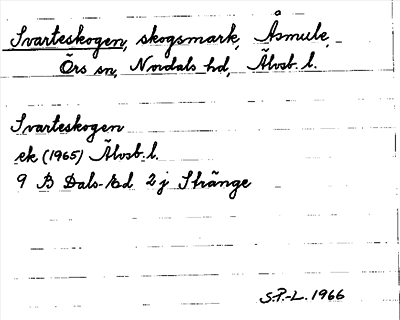 Svarteskogen, skogsmark, Åsmule,
Örs sn, Nordals hd, Älvsb. l.
Svarteskogen
ek (1965) Älvsb. l.
9 B Dals-Ed 2j Stränge
S.P.-L. 1966